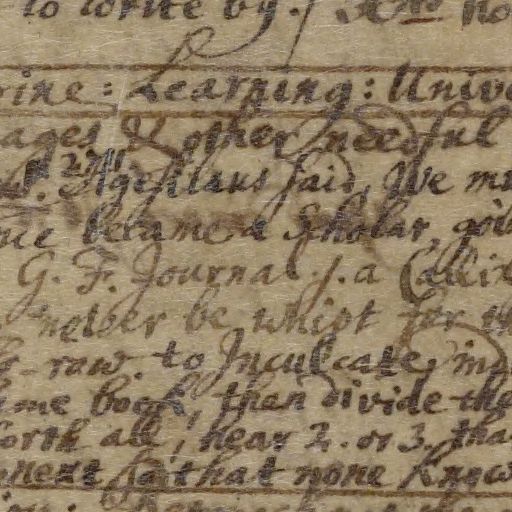 to write by.
rine: Learning: Unive
ages & other needful
Agesilaus said, We mu
me became a Scholar, goi
G. F. Journal. 1. a
never be whipt for th
raw. to Inculcate, in
ame book, then divide the
forth all, hear 2. or 3, tha
next so that none know